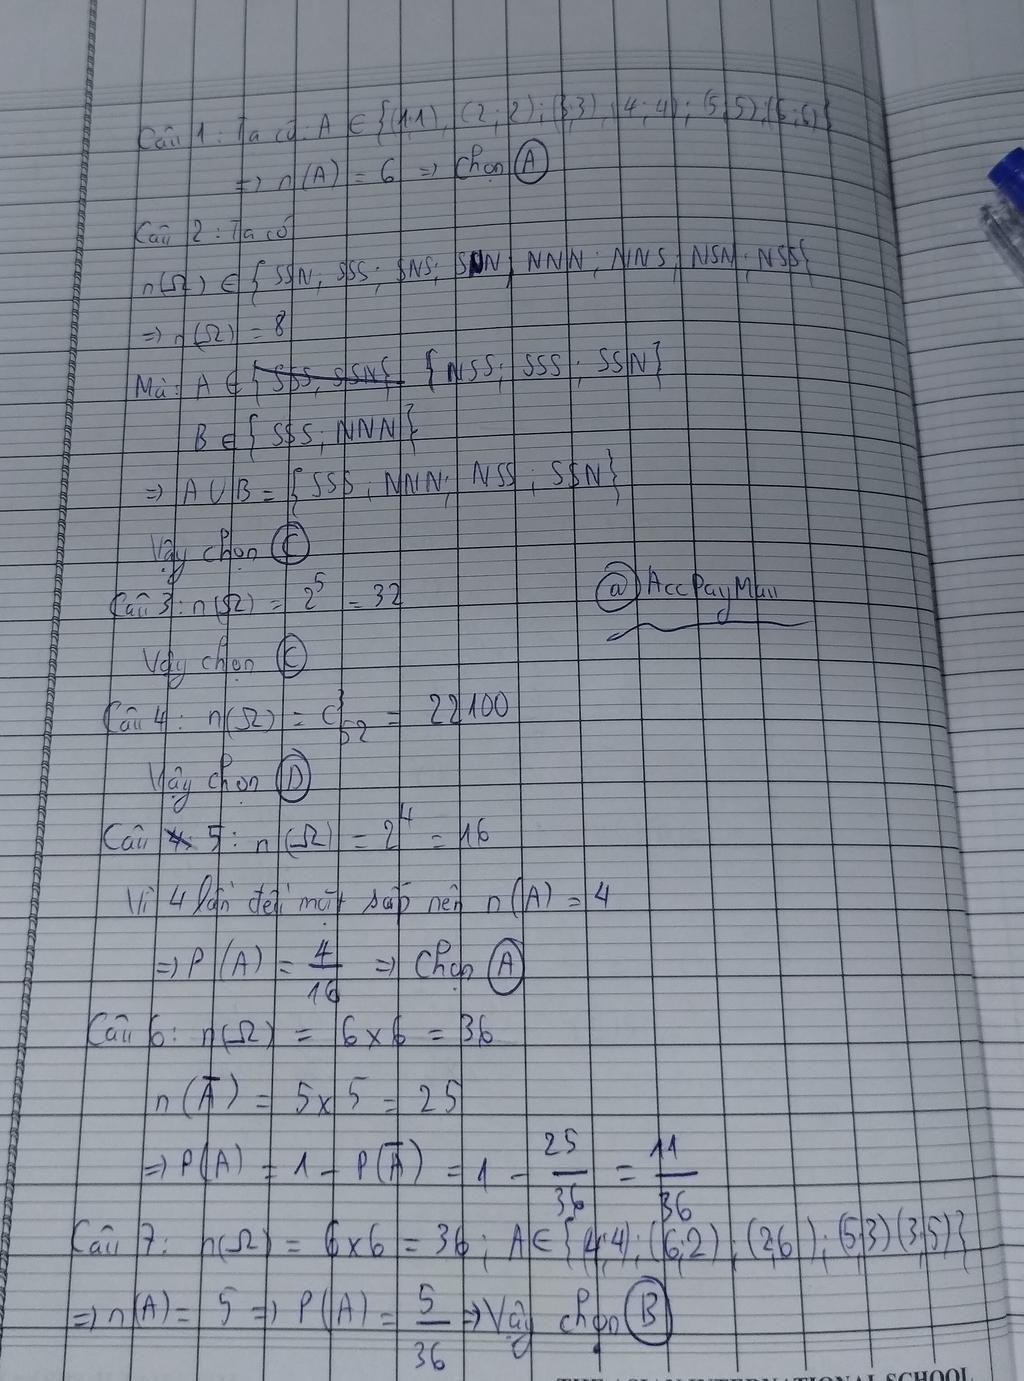 Câu 1: Ta có: A ∈ {(1;1), (2;2); (3;3), (4;4); (5;5), (6;6)}
=> n(A) = 6 => Chọn A
Câu 2: Ta có
n(Ω) ∈ {SSN; SSS; SNS; SNN; NNN; NNS; NSN; NSS}
=> n(Ω) = 8
Mà: A ∈ {SSS; SSN} {NSS; SSS; SSN}
B ∈ {SSS; NNN}
=> A ∪ B = {SSS; NNN; NSS; SSN}
Vậy chọn C
Câu 3: n(Ω) = 2⁵ = 32
@AccPayMau
Vậy chọn C
Câu 4: n(Ω) = C³₅₂ = 22100
Vậy chọn D
Câu 5: n(Ω) = 2⁴ = 16
Vì 4 lần đều mặt sấp nên n(A) = 4
=> P(A) = 4/16 => Chọn A
Câu 6: n(Ω) = 6x6 = 36
n(Ā) = 5x5 = 25
=> P(A) = 1 - P(Ā) = 1 - 25/36 = 11/36
Câu 7: n(Ω) = 6x6 = 36; A ∈ {(4;4); (6;2); (2;6); (5;3) (3;5)}
=> n(A) = 5 => P(A) = 5/36 => Vậy chọn B
THE ASIAN INTERNATIONAL SCHOOL